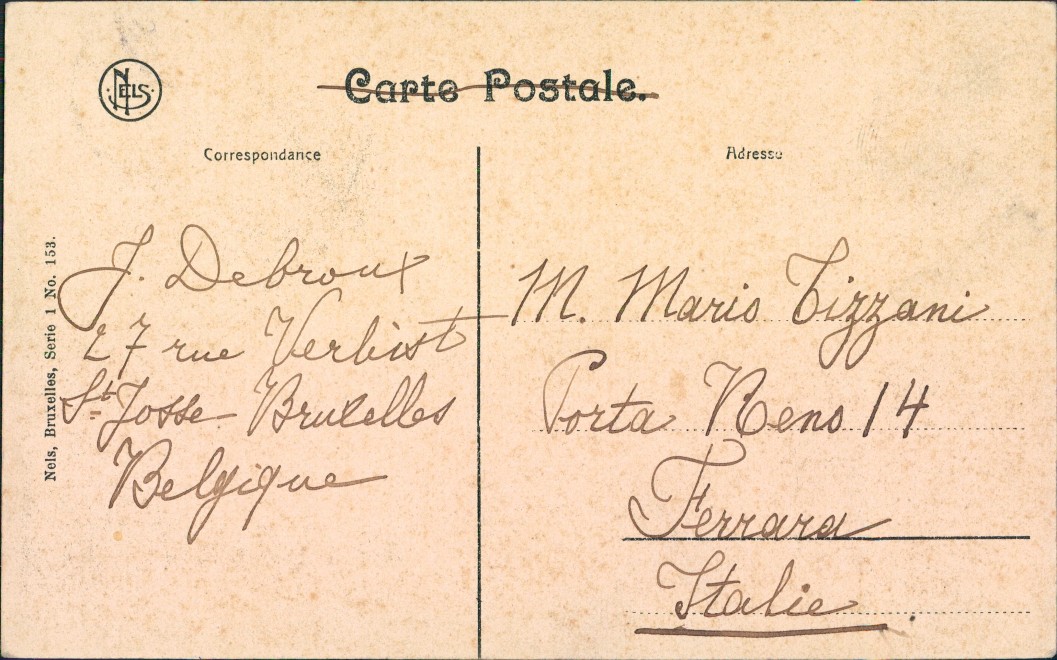 NELS
Carte Postale.
Correspondance
Adresse
Nels, Bruxelles, Serie 1 No. 153.
J. Debroux
27 rue Verbist
St Josse Bruxelles
Belgique
M. Mario Tizzani
Porta Reno 14
Ferrara
Italie.